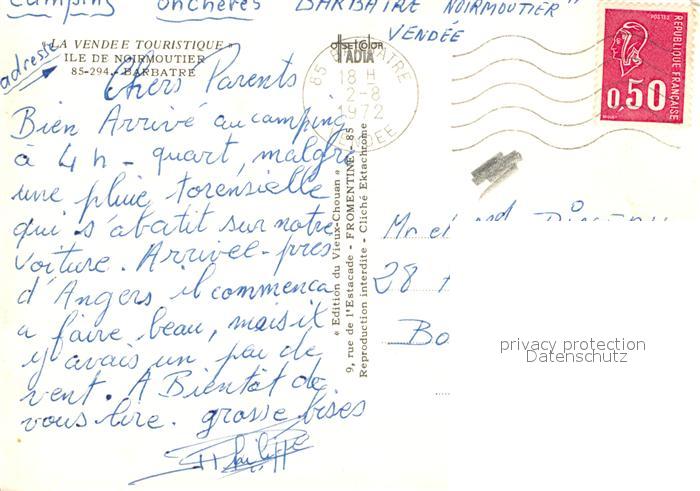 Camping onchères BARBATRE NOIRMOUTIER"
VENDÉE
adresse
"LA VENDEE TOURISTIQUE"
ILE DE NOIRMOUTIER
85-294 - BARBATRE
Chers Parents
Bien Arrivé au camping
à 4h - quart, malgré
une pluie torensielle
qui s'abatit sur notre
voiture. Arrivel-près
d'Angers il commença
a faire beau, mais il
y avais un peu de
vent. A Bientôt de
vous lire. grosse bises
Philippe
« Edition du Vieux-Chouan »
9, rue de l'Estacade - FROMENTINE - 85
Reproduction interdite - Cliché Ektachrome
JADIA
85 BARBATRE
18 H
2-8
1972
VENDEE
POSTES
REPUBLIQUE FRANÇAISE
0,50
Mr et
28
Bo
privacy protection
Datenschutz